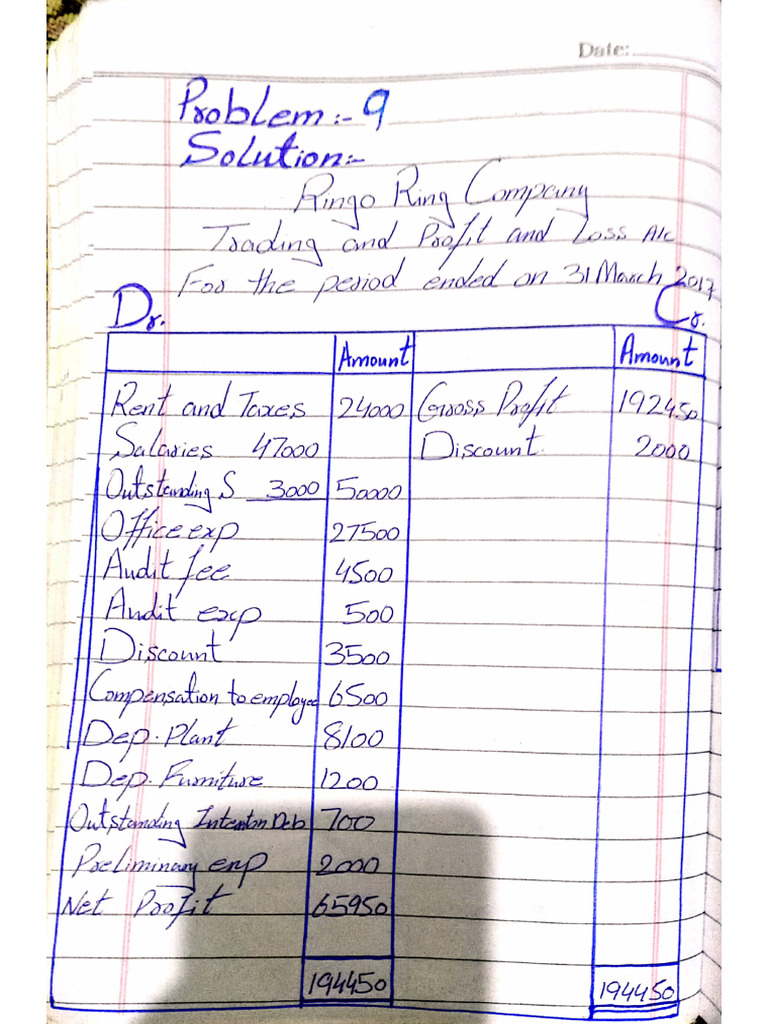 Date:
Problem:- 9
Solution:-
Ringo Ring Company
Trading and Profit and Loss A/c
For the period ended on 31 March 2017
Dr. Cr.
Amount Amount
Rent and Taxes 24000 Gross Profit 192450
Salaries 47000 Discount. 2000
Outstanding S 3000 50000
Office exp 27500
Audit fee 4500
Audit exp 500
Discount 3500
Compensation to employee 6500
Dep. Plant 8100
Dep. Furniture 1200
Outstanding Deb 700
Preliminary exp 2000
Net Profit 65950
194450 194450